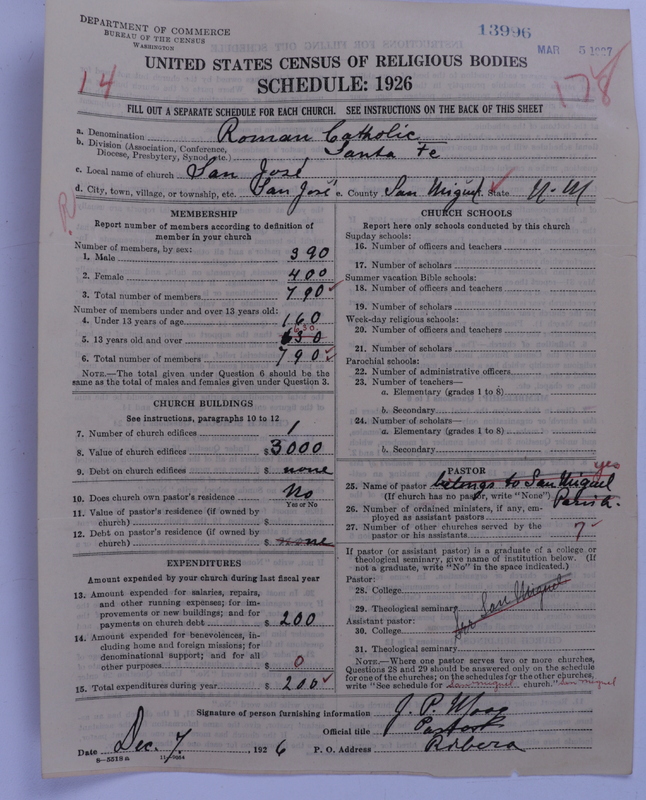 DEPARTMENT OF COMMERCE
BUREAU OF THE CENSUS
WASHINGTON
13996
MAR 5 1927
UNITED STATES CENSUS OF RELIGIOUS BODIES
SCHEDULE: 1926
14
178
FILL OUT A SEPARATE SCHEDULE FOR EACH CHURCH. SEE INSTRUCTIONS ON THE BACK OF THIS SHEET
a. Denomination Roman Catholic
b. Division (Association, Conference, Diocese, Presbytery, Synod, etc.) Santa Fe
c. Local name of church San José
d. City, town, village, or township, etc. San José e. County San Miguel State N-M
MEMBERSHIP
Report number of members according to definition of
member in your church
Number of members, by sex:
1. Male 390
2. Female 400
3. Total number of members 790
Number of members under and over 13 years old:
4. Under 13 years of age 160
5. 13 years old and over 630 630
6. Total number of members 790
NOTE.—The total given under Question 6 should be the
same as the total of males and females given under Question 3.
CHURCH BUILDINGS
See instructions, paragraphs 10 to 12
7. Number of church edifices 1
8. Value of church edifices $ 3000
9. Debt on church edifices $ none
10. Does church own pastor's residence No
Yes or No
11. Value of pastor's residence (if owned by
church) $
12. Debt on pastor's residence (if owned by
church) $ none
EXPENDITURES
Amount expended by your church during last fiscal year
13. Amount expended for salaries, repairs,
and other running expenses; for im-
provements or new buildings; and for
payments on church debt $ 200
14. Amount expended for benevolences, in-
cluding home and foreign missions; for
denominational support; and for all
other purposes $ 0
15. Total expenditures during year $ 200
CHURCH SCHOOLS
Report here only schools conducted by this church
Sunday schools:
16. Number of officers and teachers
17. Number of scholars
Summer vacation Bible schools:
18. Number of officers and teachers
19. Number of scholars
Week-day religious schools:
20. Number of officers and teachers
21. Number of scholars
Parochial schools:
22. Number of administrative officers
23. Number of teachers—
a. Elementary (grades 1 to 8)
b. Secondary
24. Number of scholars—
a. Elementary (grades 1 to 8)
b. Secondary
PASTOR
yes
25. Name of pastor belongs to San Miguel
(If church has no pastor, write "None") Parish.
26. Number of ordained ministers, if any, em-
ployed as assistant pastors
27. Number of other churches served by the
pastor or his assistants 7
If pastor (or assistant pastor) is a graduate of a college or
theological seminary, give name of institution below. (If
not a graduate, write "No" in the space indicated.)
Pastor:
28. College
29. Theological seminary
for San Miguel
Assistant pastor:
30. College
31. Theological seminary
NOTE.—Where one pastor serves two or more churches,
Questions 28 and 29 should be answered only on the schedule
for one of the churches; on the schedules for the other churches,
write "See schedule for San Miguel church." San Miguel
Signature of person furnishing information J. P. Moog
Official title Pastor
Date Dec. 7, 1926 P. O. Address Ribera
8—5518 a